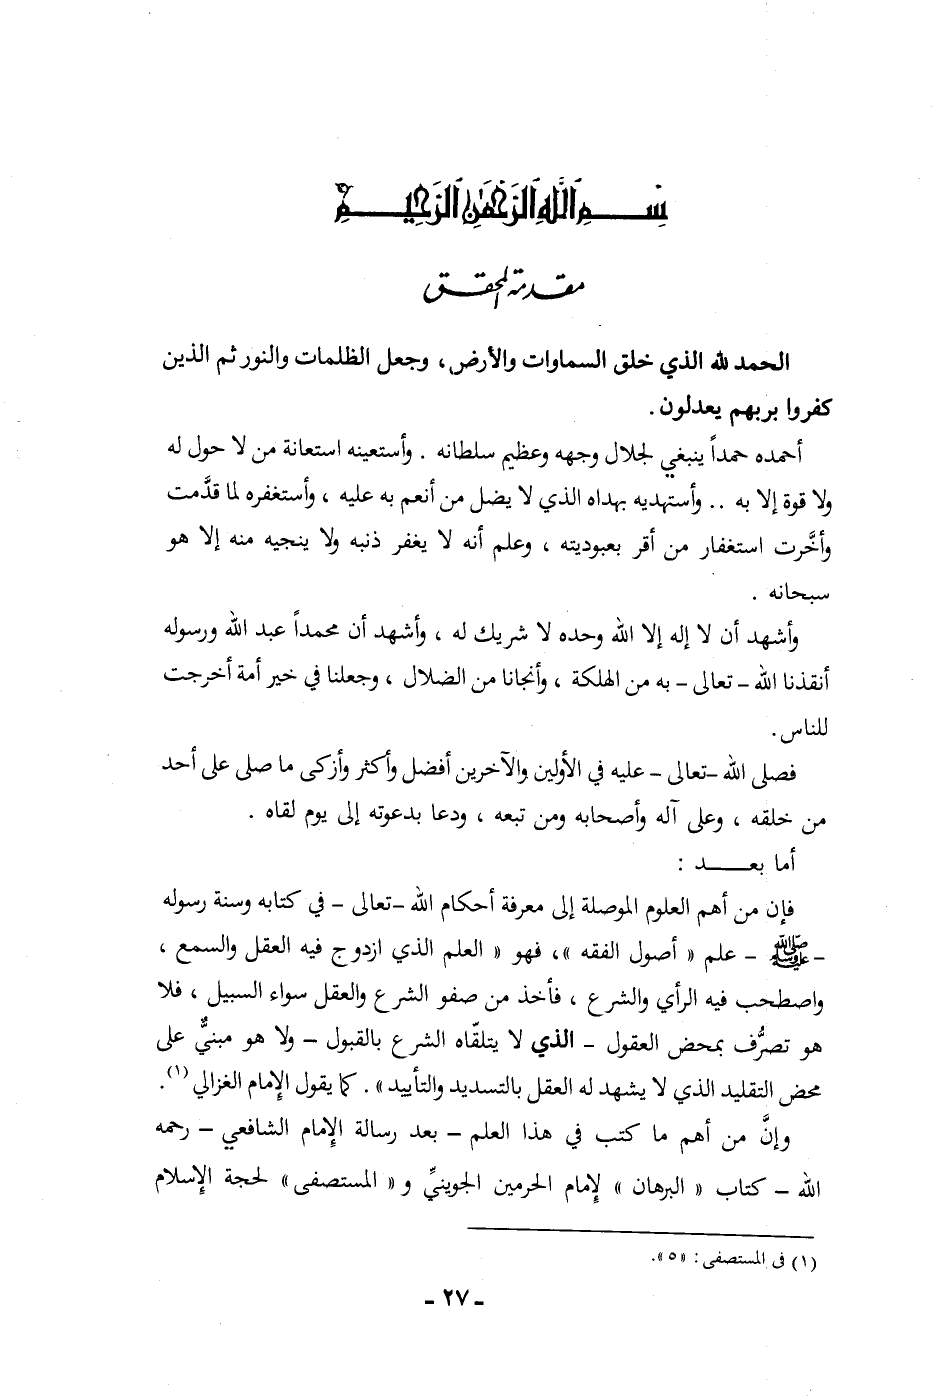 بسم الله الرحمن الرحيم
مقدمة المحقق
الحمد لله الذي خلق السماوات والأرض، وجعل الظلمات والنور ثم الذين
كفروا بربهم يعدلون.
أحمده حمداً ينبغي لجلال وجهه وعظيم سلطانه . وأستعينه استعانة من لا حول له
ولا قوة إلا به .. وأستهديه بهداه الذي لا يضل من أنعم به عليه ، وأستغفره لما قدَّمت
وأخَّرت استغفار من أقر بعبوديته ، وعلم أنه لا يغفر ذنبه ولا ينجيه منه إلا هو
سبحانه .
وأشهد أن لا إله إلا الله وحده لا شريك له ، وأشهد أن محمداً عبد الله ورسوله
أنقذنا الله - تعالى - به من الهلكة ، وأنجانا من الضلال ، وجعلنا في خير أمة أخرجت
للناس.
فصلى الله -تعالى - عليه في الأولين والآخرين أفضل وأكثر وأزكى ما صلى على أحد
من خلقه ، وعلى آله وأصحابه ومن تبعه ، ودعا بدعوته إلى يوم لقاه .
أما بعـــد :
فإن من أهم العلوم الموصلة إلى معرفة أحكام الله -تعالى - في كتابه وسنة رسوله
- ﷺ - علم « أصول الفقه »، فهو « العلم الذي ازدوج فيه العقل والسمع ،
واصطحب فيه الرأي والشرع ، فأخذ من صفو الشرع والعقل سواء السبيل ، فلا
هو تصرُّف بمحض العقول - الذي لا يتلقّاه الشرع بالقبول - ولا هو مبنيٌّ على
محض التقليد الذي لا يشهد له العقل بالتسديد والتأييد ». كما يقول الإمام الغزالي (١).
وإنَّ من أهم ما كتب في هذا العلم - بعد رسالة الإمام الشافعي - رحمه
الله - كتاب « البرهان » لإمام الحرمين الجوينيِّ و « المستصفى » لحجة الإسلام
(١) في المستصفى: «٥».
- ٢٧ -